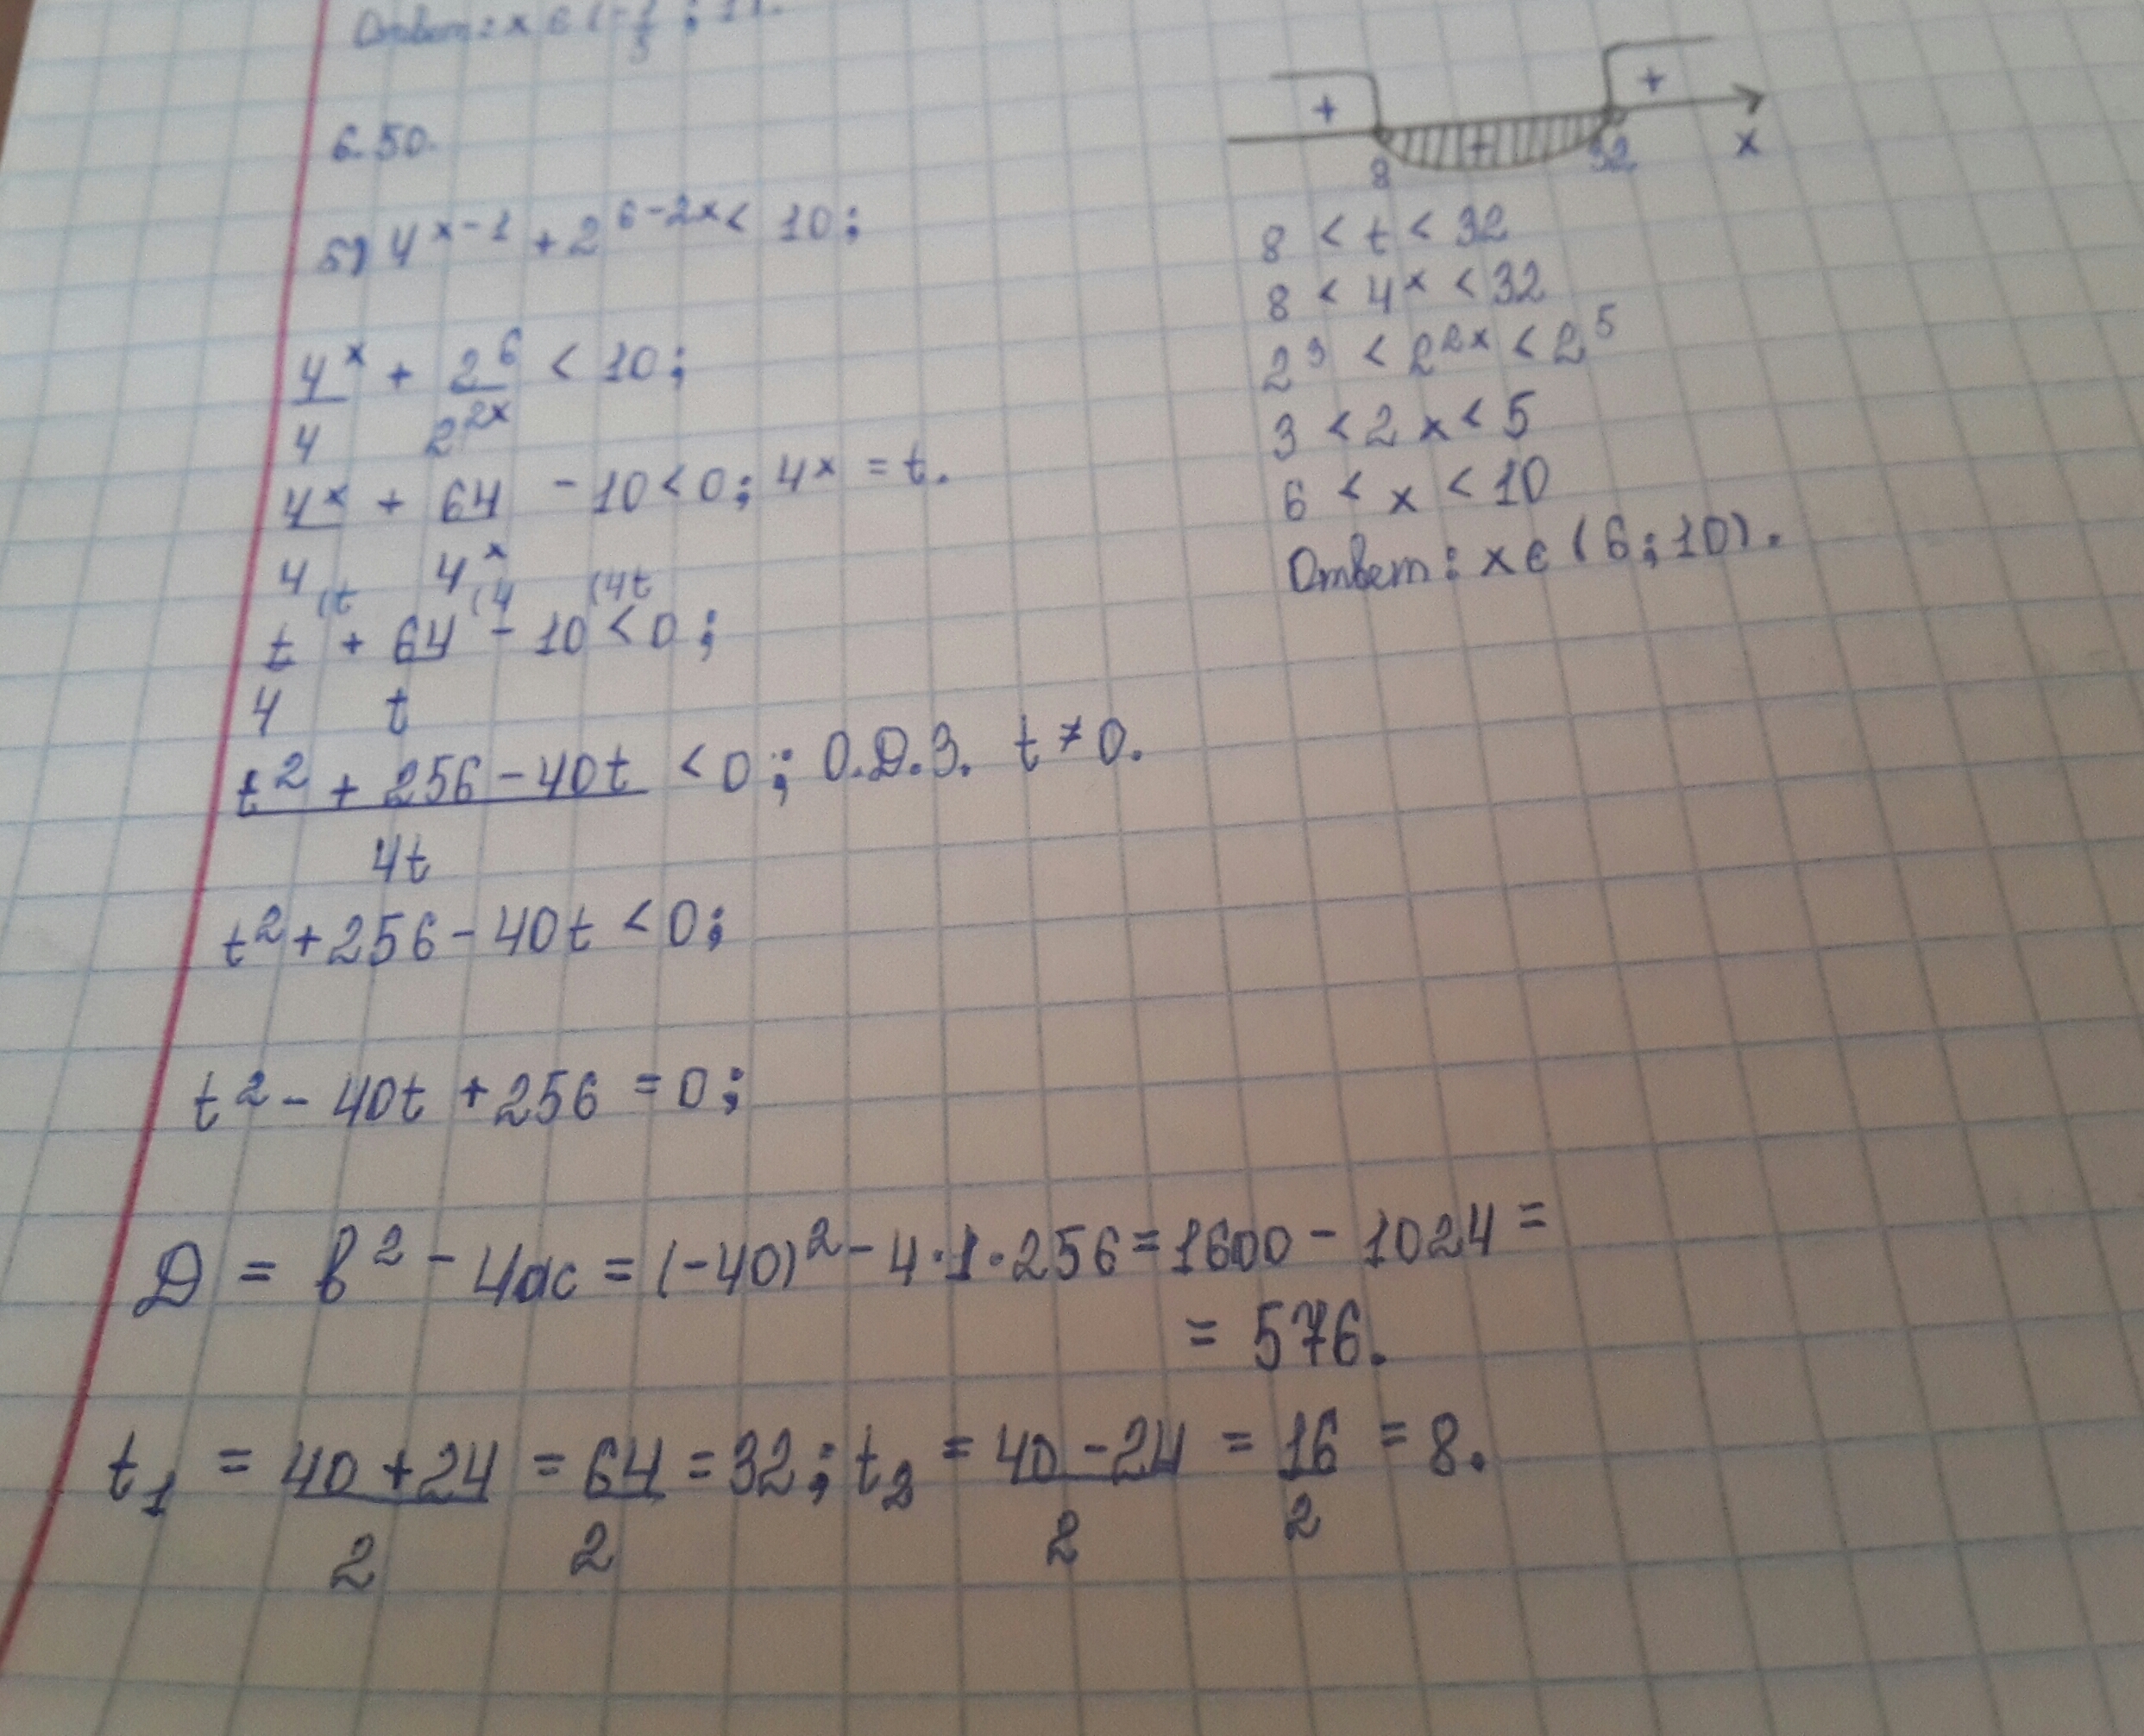 Ответ: x ∈ (-1/5; 1).
6.50.
5) 4^(x-1) + 2^(6-2x) < 10;
4^x/4 + 2^6/2^(2x) < 10;
4^x/4 + 64/4^x - 10 < 0; 4^x = t.
(t (4 (4t
t/4 + 64/t - 10 < 0;
(t² + 256 - 40t)/4t < 0; О.Д.З. t ≠ 0.
t² + 256 - 40t < 0;
t² - 40t + 256 = 0;
D = b² - 4ac = (-40)² - 4·1·256 = 1600 - 1024 =
= 576.
t₁ = (40+24)/2 = 64/2 = 32; t₂ = (40-24)/2 = 16/2 = 8.
+ + +
8 32 x
8 < t < 32
8 < 4^x < 32
2^3 < 2^(2x) < 2^5
3 < 2x < 5
6 < x < 10
Ответ: x ∈ (6; 10).